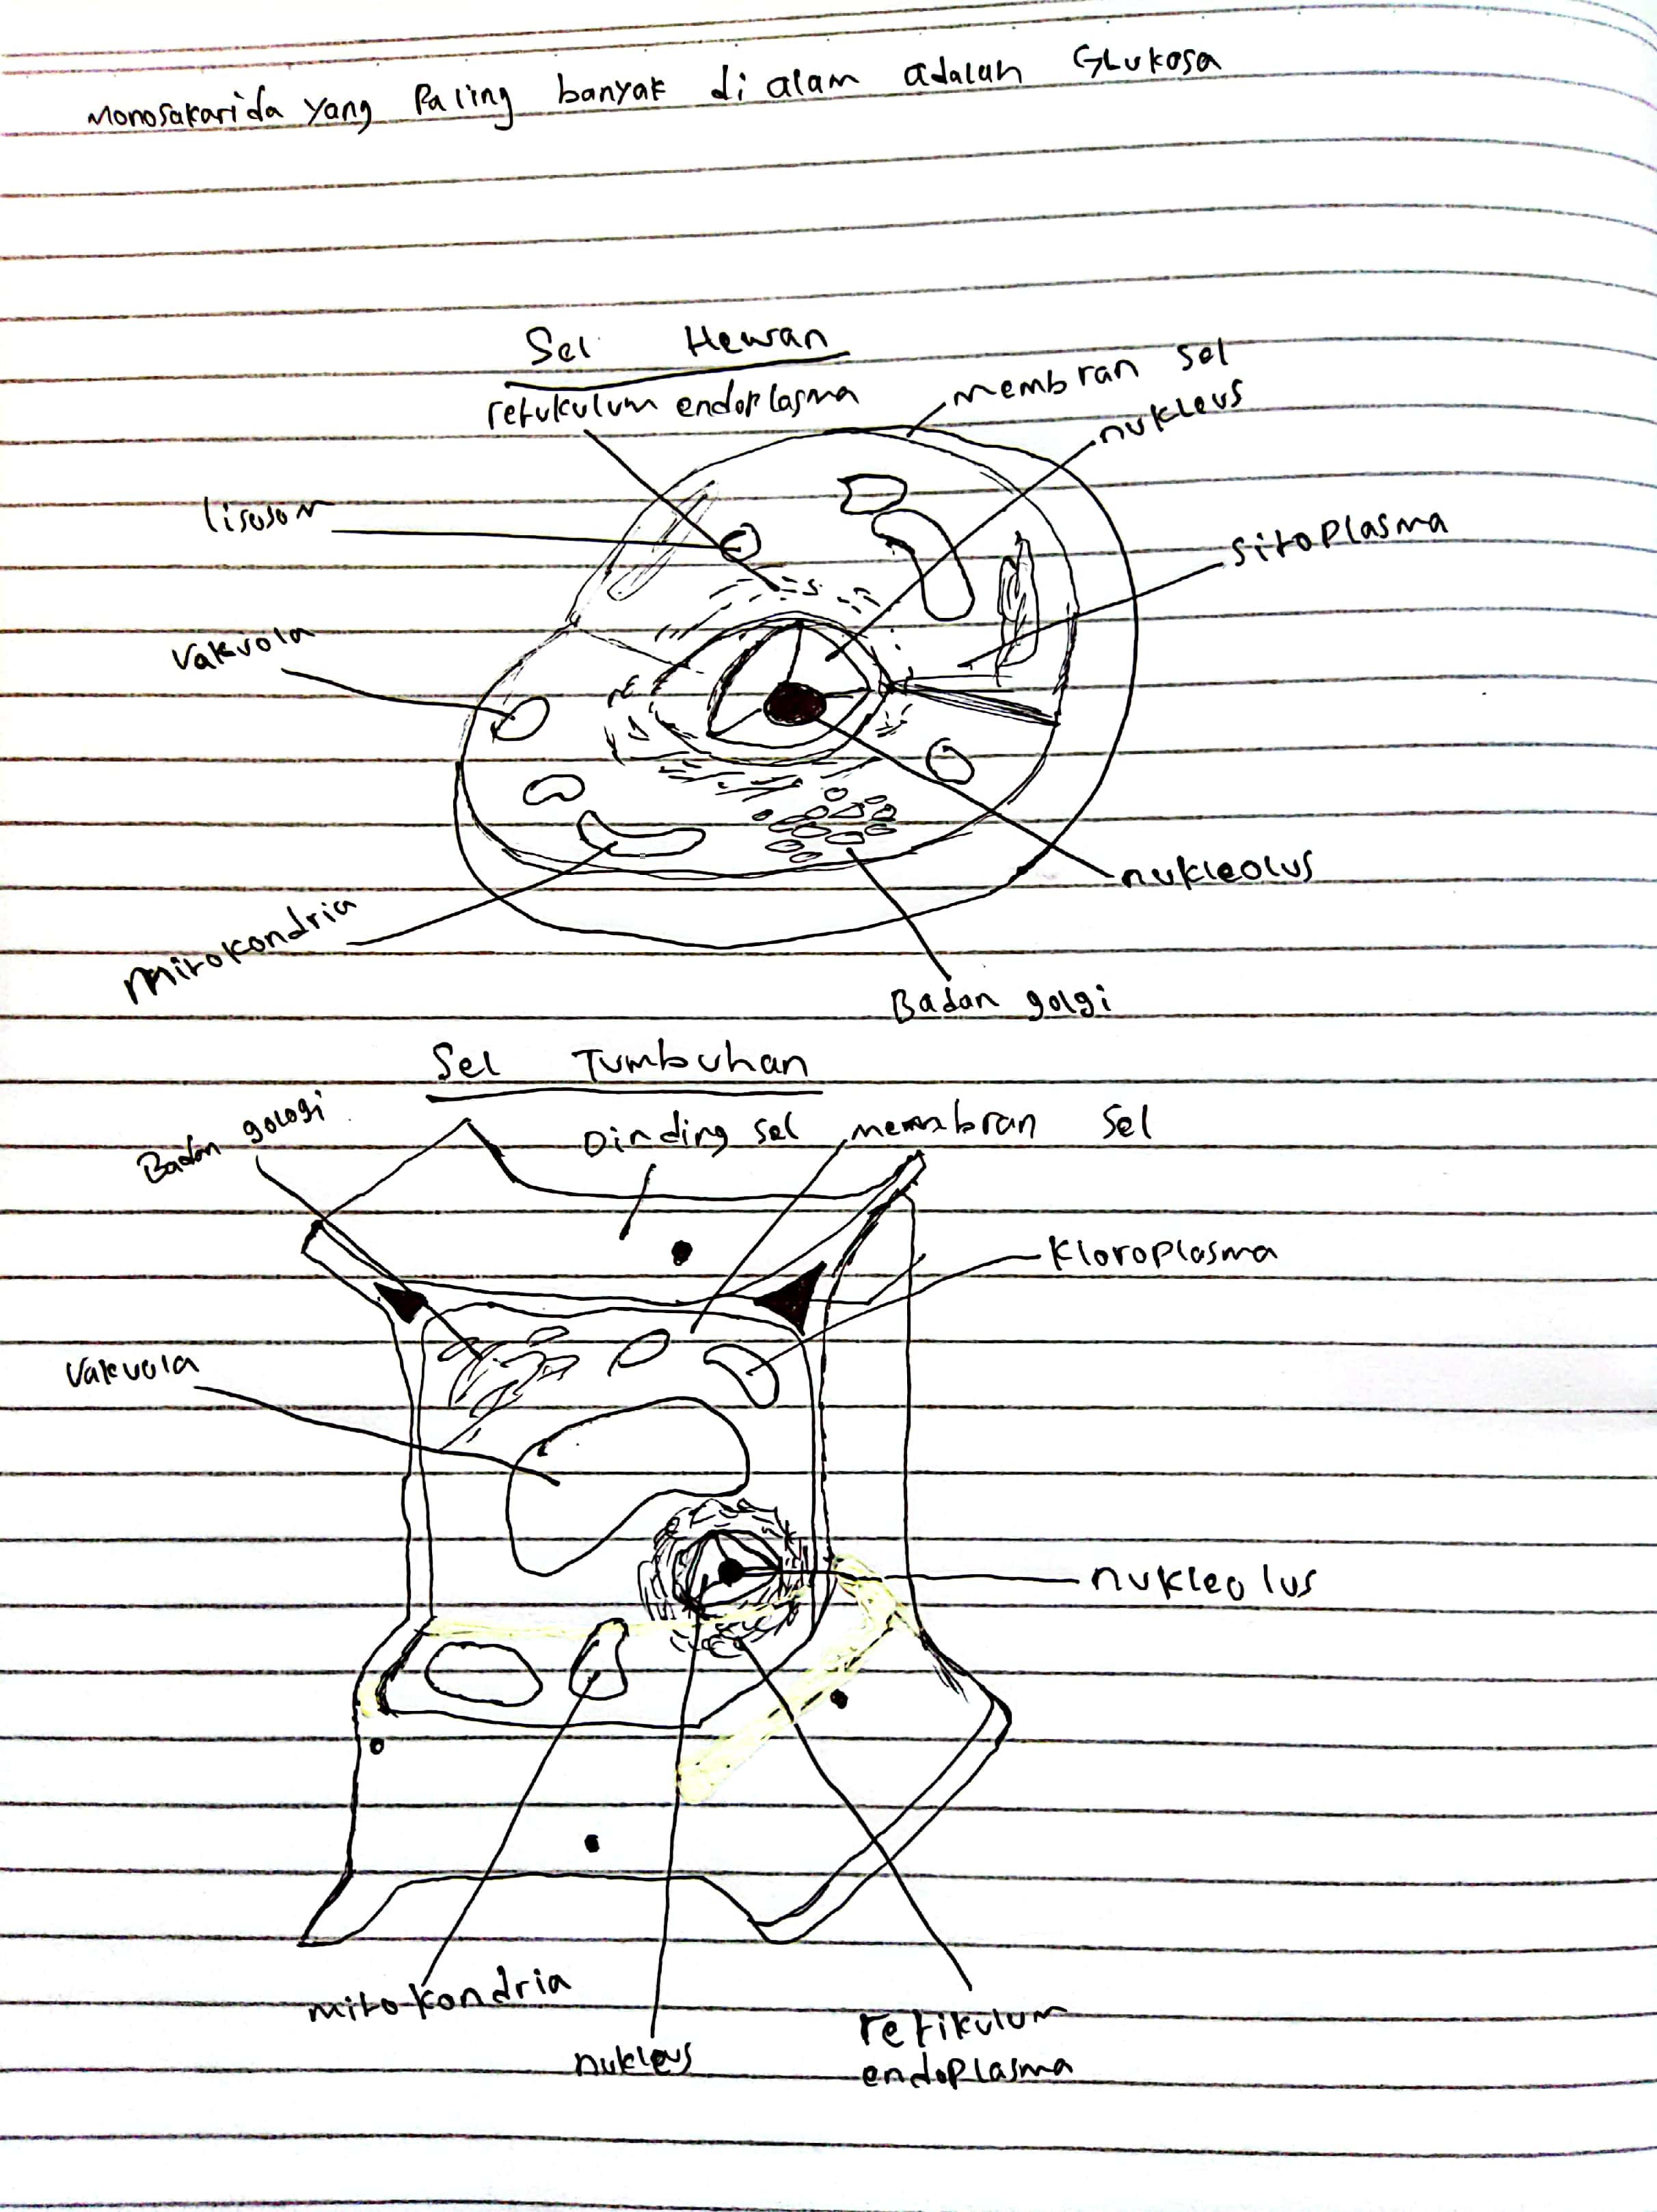 Monosakarida yang Paling banyak di alam adalah Glukosa
Sel Hewan
retukulum endoplasma
membran sel
nukleus
lisosom
sitoplasma
Vakuola
nukleolus
mitokondria
Badan golgi
Sel Tumbuhan
Badan gologi
Dinding sel
membran Sel
Kloroplasma
Vakuola
nukleolus
mitokondria
nukleus
retikulum
endoplasma